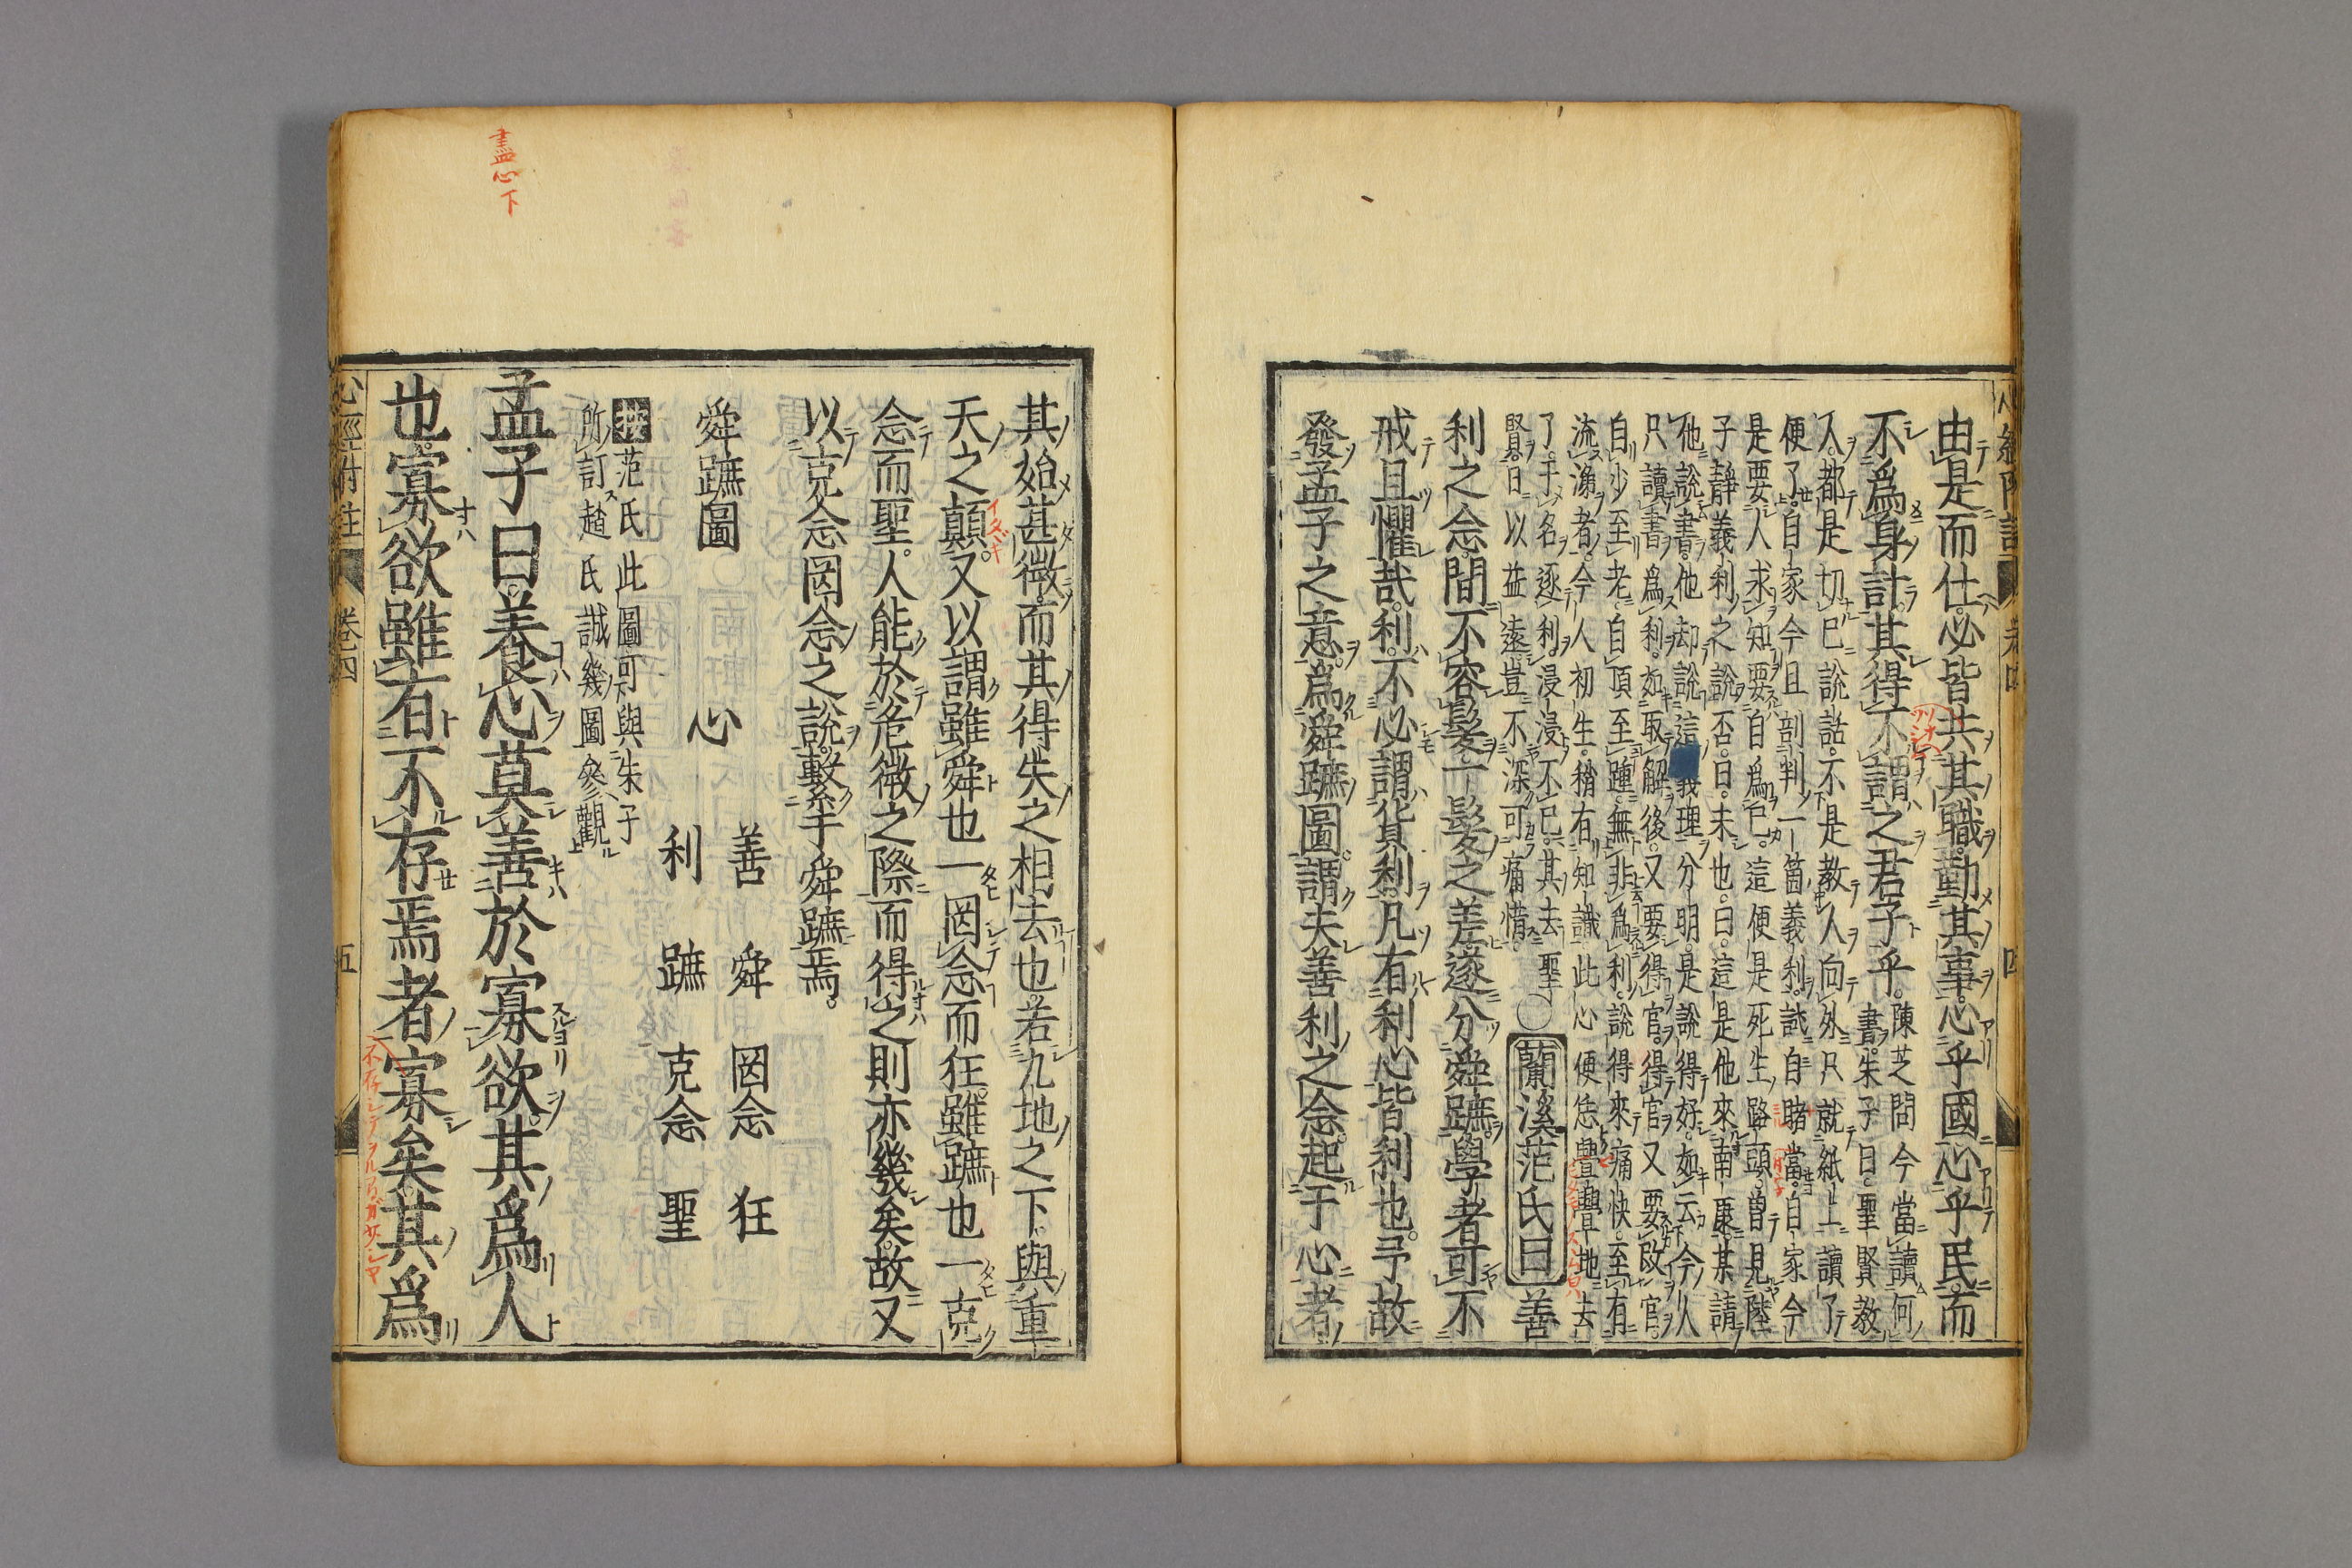 由是而仕必皆共其職勤其事心乎國心乎民而
不爲身計其得不謂之君子乎
陳芝問今當讀何
書朱子曰聖賢教
人都是切已說話不是教人向外只就紙上讀了
便了自家今且剖判一箇義利試自睹當自家今
是要人求知要自爲已這便是死生路頭曾見陸
子靜義利之說否曰未也曰這是他來南康某請
他說書他却說這義理分明是說得好如云今人
只讀書爲利如取解後又要得官得官又要改官
自少至老自頂至踵無非爲利說得來痛快至有
流涕者今人初生稍有知識此心便恁亹亹地去
了于名逐利浸浸不已其去聖
賢日以益遠豈不深可痛惜
〇蘭溪范氏曰善
利之念間不容髮一髮之差遂分舜蹠學者可不
戒且懼哉利不必謂貨利凡有利心皆利也予故
發孟子之意爲舜蹠圖謂夫善利之念起于心者
其始甚微而其得失之相去也若九地之下與重
天之顛又以謂雖舜也一罔念而狂雖蹠也一克
念而聖人能於危微之際而得之則亦幾矣故又
以克念罔念之說繫于舜蹠焉
舜蹠圖
心
善 舜 罔念 狂
利 蹠 克念 聖
按范氏此圖可與朱子
所訂趙氏誠幾圖參觀
孟子曰養心莫善於寡欲其爲人
也寡欲雖有不存焉者寡矣其爲
心經附註 卷四 五
盡心下